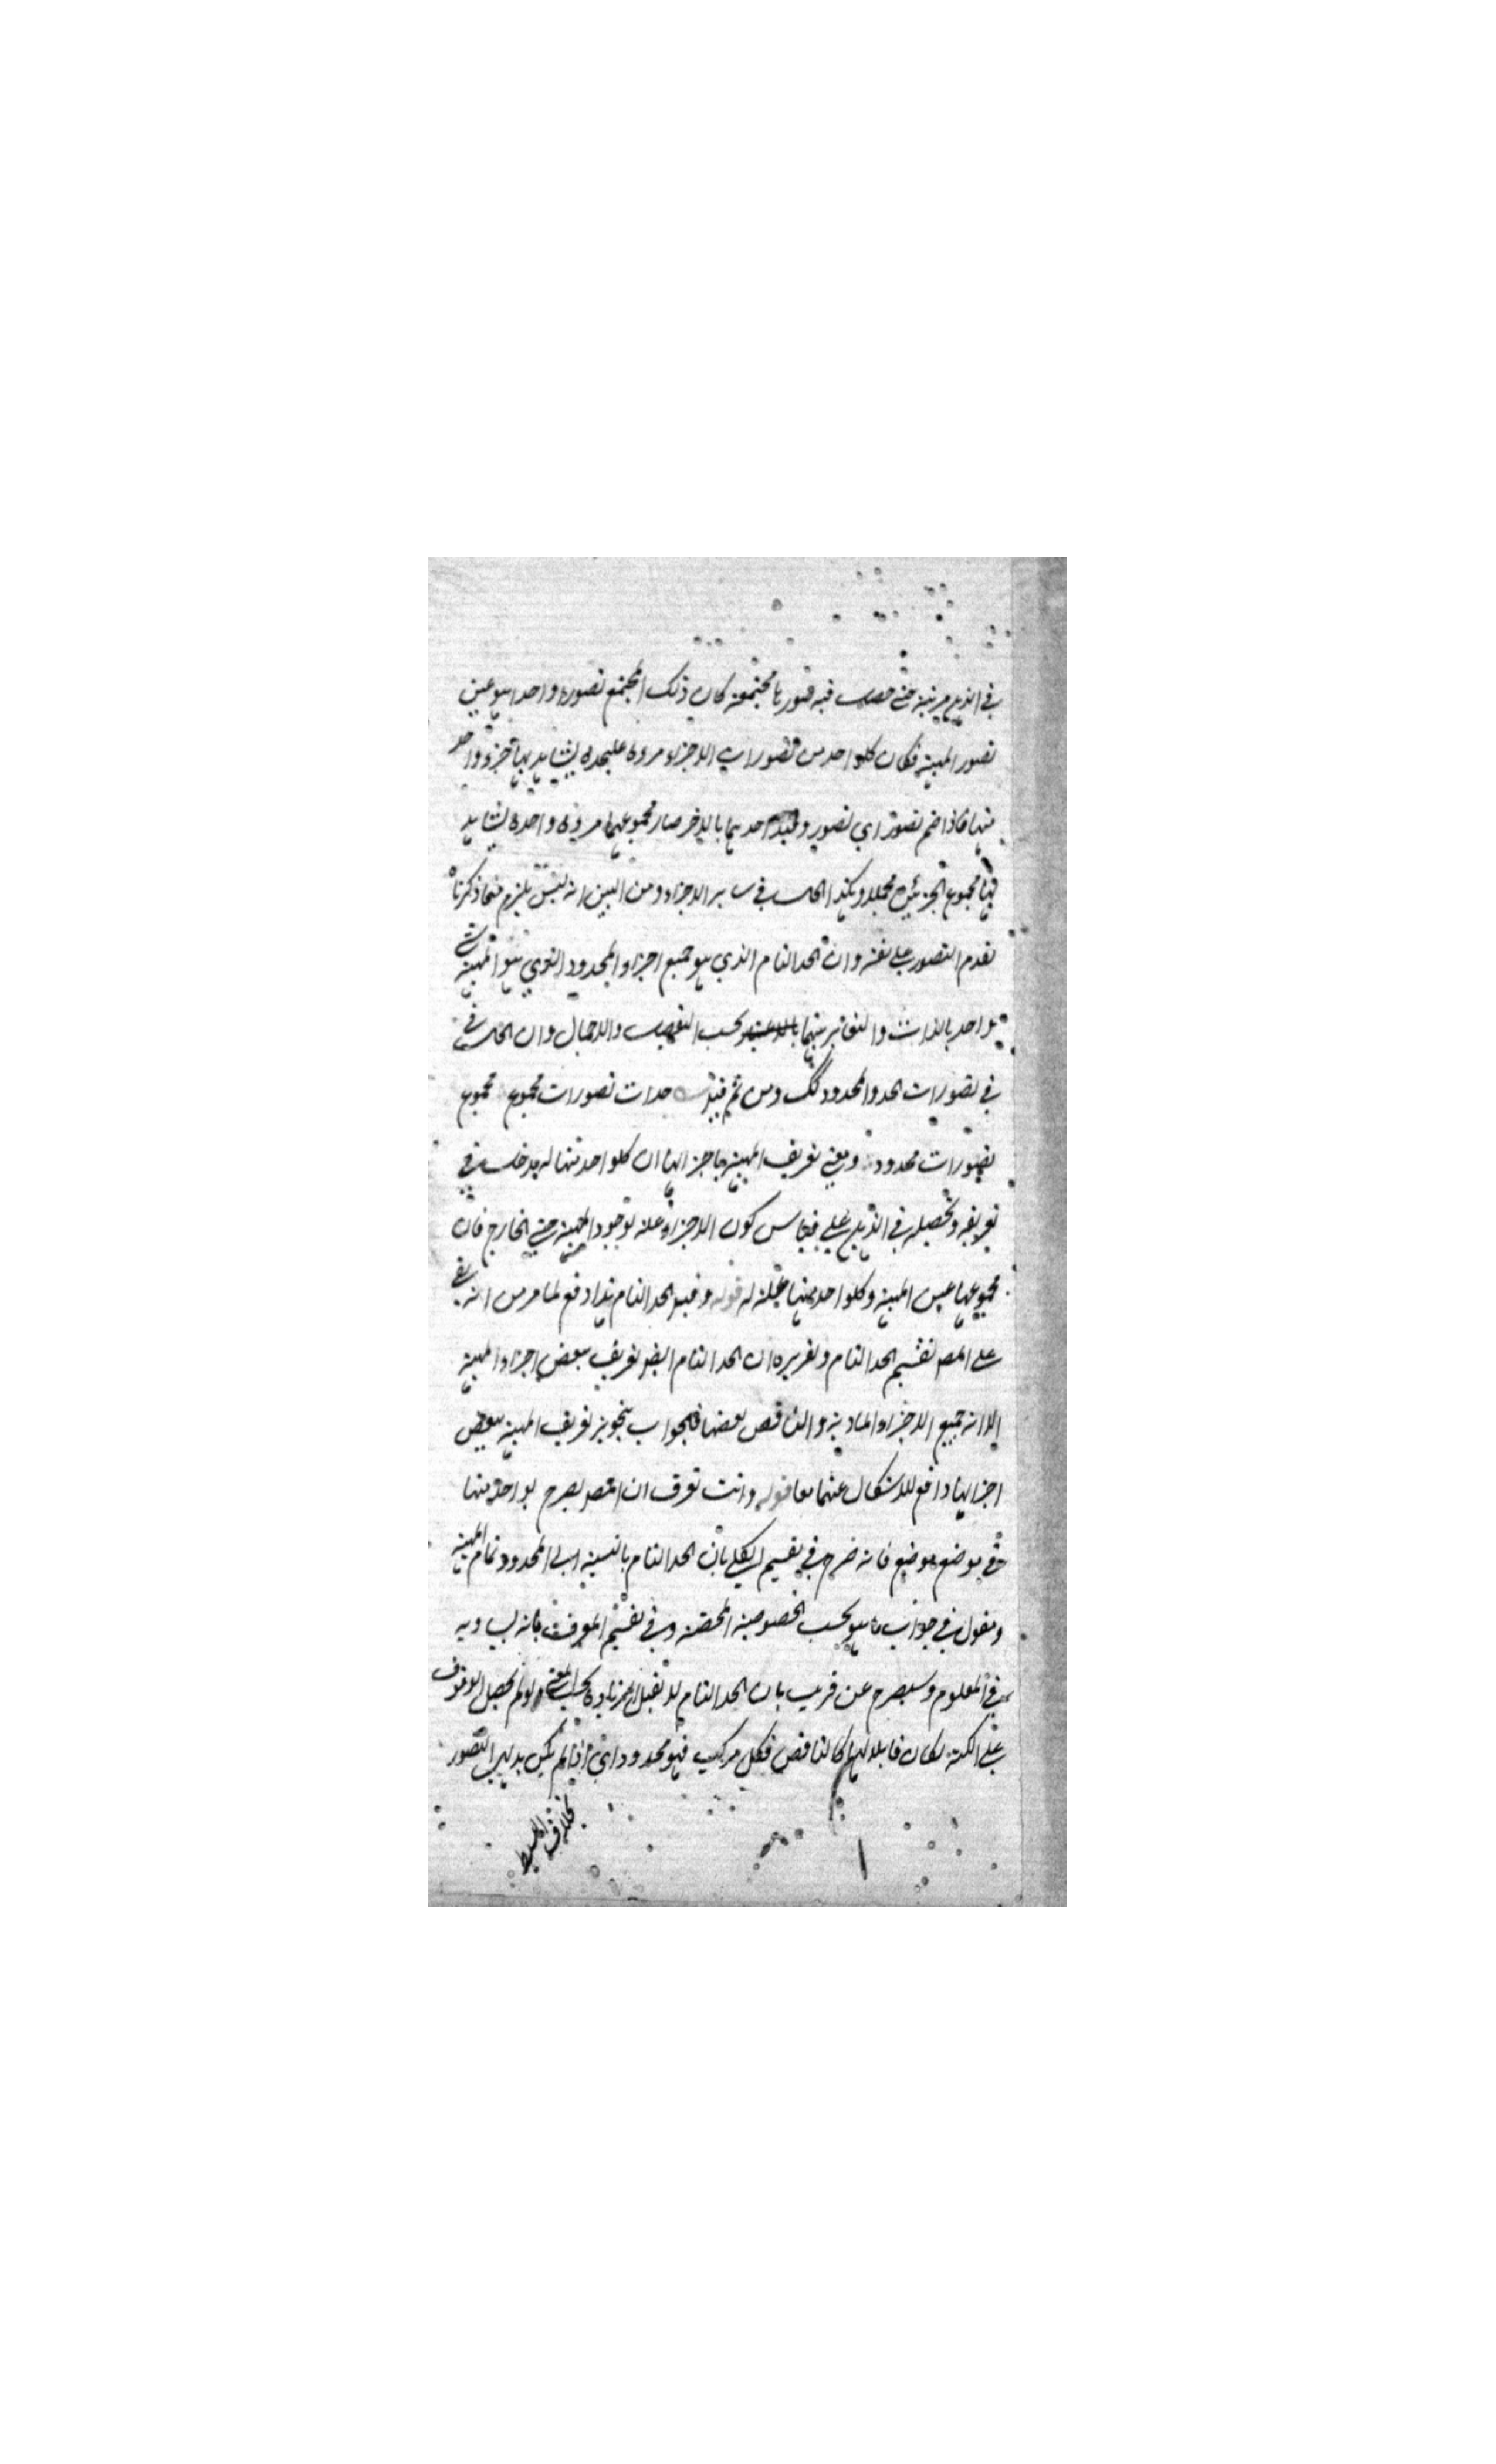 في الذهن مرتبة حتى حصلت فيه صورها مجتمعة كان ذلك المجتمع تصورا واحدا هو عين
تصور المهية فكان كلواحد من تصورات الاجزاء مرءاة عليحدة يشاهد بها جزء واحد
منها فاذا ضم تصور الى تصور وقيد احدهما بالاخر صار مجموعهما مرءاة واحدة يشاهد
بها مجموع الجزئين مجملا وهكذا الحال في ساير الاجزاء ومن البين انه ليس يلزم مما ذكرنا
تقدم التصور على نفسه وان الحد التام الذي هو جميع اجزاء المحدود الذي هو المهية شئ
واحد بالذات والتغاير بينهما بحسب التفصيل والاجمال وان الحال
في تصورات الحد والمحدود كك ومن ثم قيل تصورات مجموع مجموع
تصورات محدود ومعنى تعريف المهية باجزائها ان كلواحد منها له مدخل في
تعريفه وتحصيله في الذهن على قياس كون الاجزاء علة لوجود المهية في الخارج فان
مجموعها عين المهية وكلواحد منها علة له قوله وقيل الحد التام هذا دفع لما مر من انه بقى
على المصر تقسيم الحد التام وتقريره ان الحد التام ايضا تعريف ببعض اجزاء المهية
الا انه جميع الاجزاء المادية والناقص بعضها فالجواب بتجويز تعريف المهية ببعض
اجزائها دافع للاشكال عنهما معا قوله وانت تعرف ان المصر يصرح بواحد منها
في موضع موضع فانه صرح في تقسيم الكلي بان الحد التام بالنسبة الى المحدود تمام المهية
ومقول في جواب ما هو بحسب الخصوصية المحضة وفي تقسيم المعرف بانه يساويه
في المعلوم وسيصرح عن قريب بان الحد التام لا يقبل الزيادة بحسب المعنى ولو لم يحصل الوقوف
على الكنه لكان قابلا لها كالناقص فكل مركب فهو محدود اي اذا لم يكن بديهي التصور
بخلاف البسيط